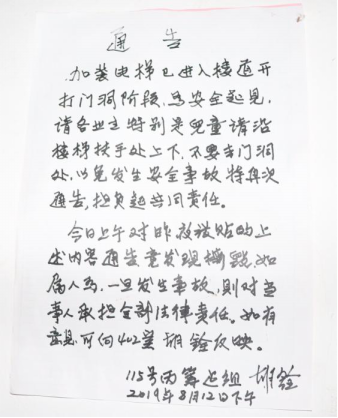 通告
加装电梯已进入楼道开
打门洞阶段,为安全起见,
请各业主特别是儿童请沿
楼梯扶手处上下,不要去门洞
处,以免发生安全事故特再次
通告,担负起共同责任。
今日上午对昨夜张贴的上
述内容通告竟发现撕毁,如
属人为,一旦发生事故,则对当
事人承担全部法律责任。如有
意见,可向402室胡铨反映。
115号西筹迠组 胡铨
2019年8月12日下午